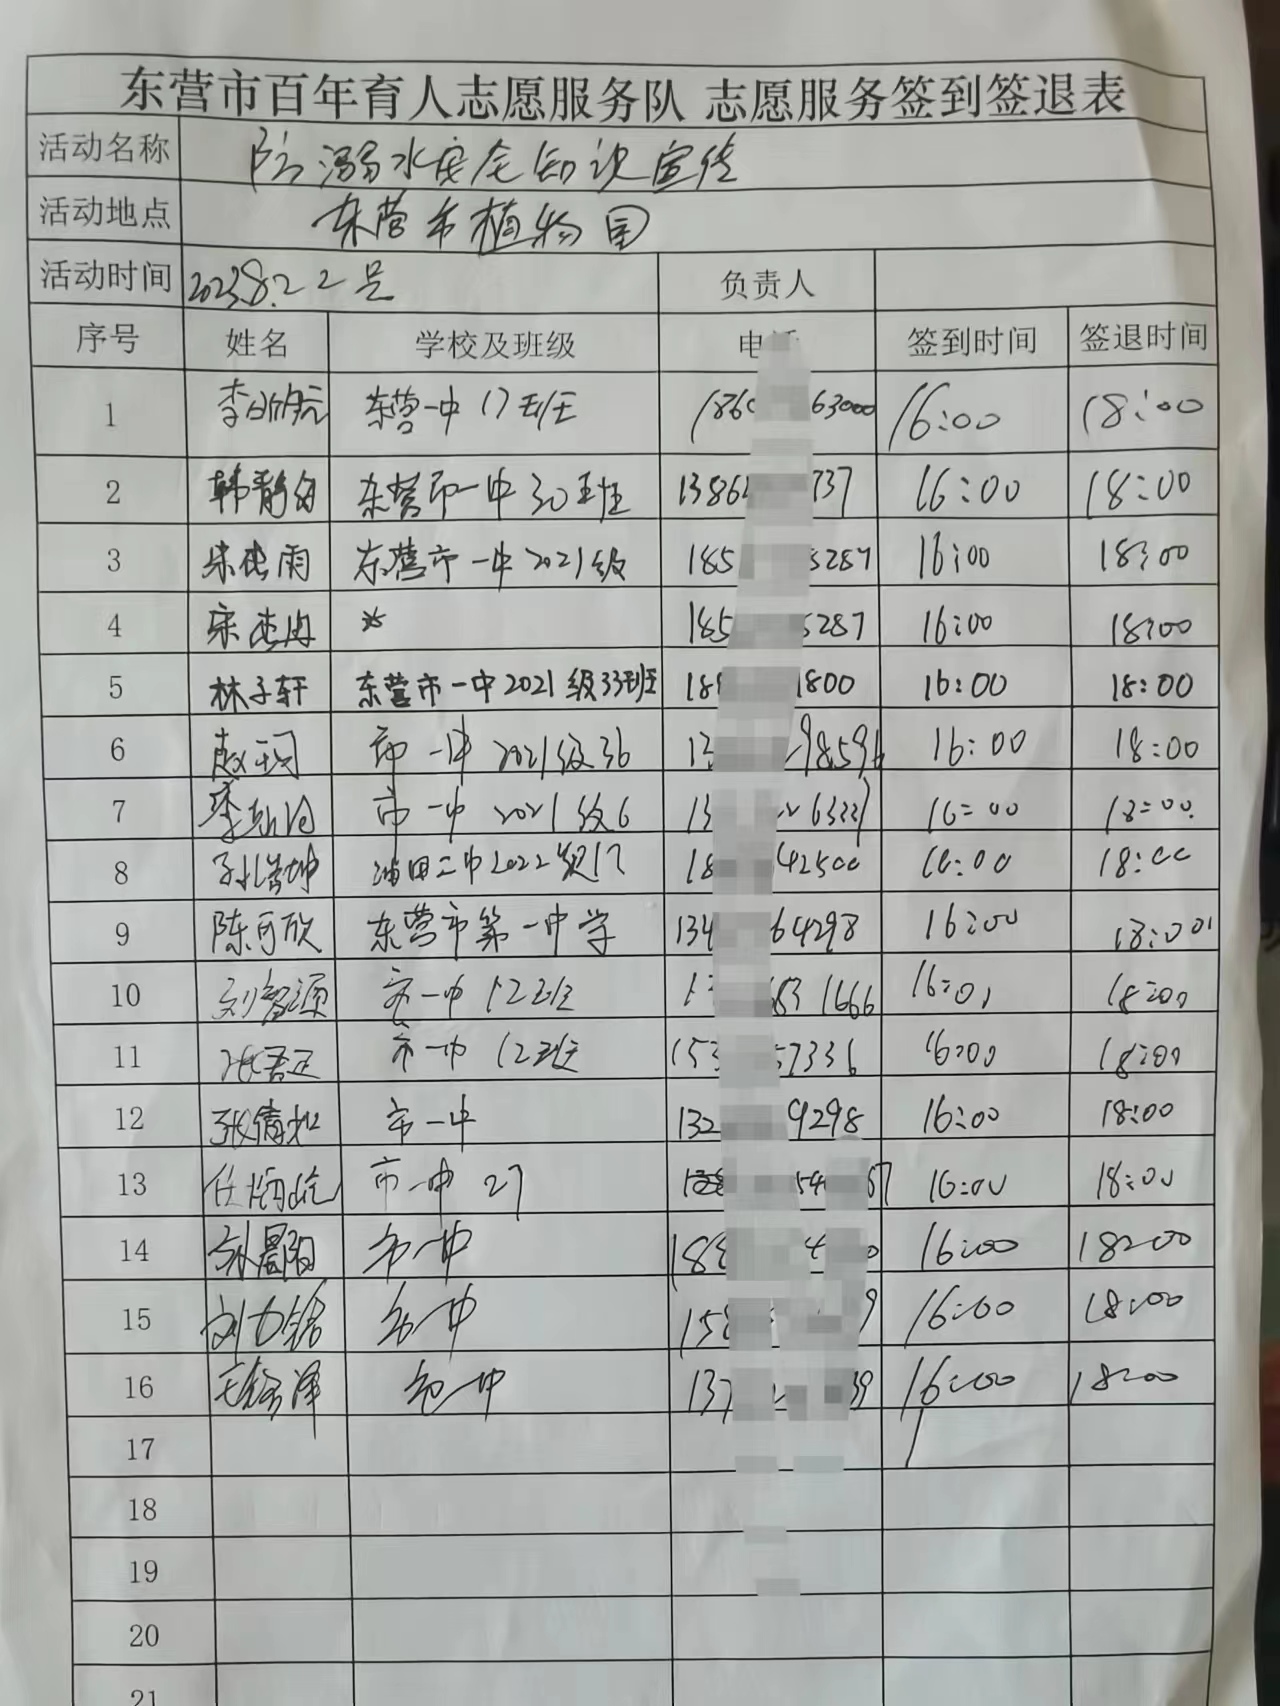 东营市百年育人志愿服务队 志愿服务签到签退表
活动名称 防溺水安全知识宣传
活动地点 东营市植物园
活动时间 2023.8.22号 负责人
序号 姓名 学校及班级 电话 签到时间 签退时间
1 东营一中 17班 1860 63000 16:00 18:00
2 东营市一中 30班 1386 737 16:00 18:00
3 东营市一中 2021级 185 5287 16:00 18:00
4 185 5287 16:00 18:00
5 林子轩 东营市一中 2021级33班 18 1800 16:00 18:00
6 赵珂 市一中 2021级36 13 98596 16:00 18:00
7 市一中 2021级6 13 16:00 18:00
8 二中 2022级17 18 42500 16:00 18:00
9 陈可欣 东营市第一中学 134 64298 16:00 18:00
10 刘智源 市一中 12班 1666 16:01 18:00
11 市一中 12班 153 57336 16:00 18:00
12 张倩 市一中 132 9298 16:00 18:00
13 市一中 27 54 57 16:00 18:00
14 市一中 188 4 0 16:00 18:00
15 市一中 158 9 16:00 18:00
16 市一中 137 39 16:00 18:00
17
18
19
20
21